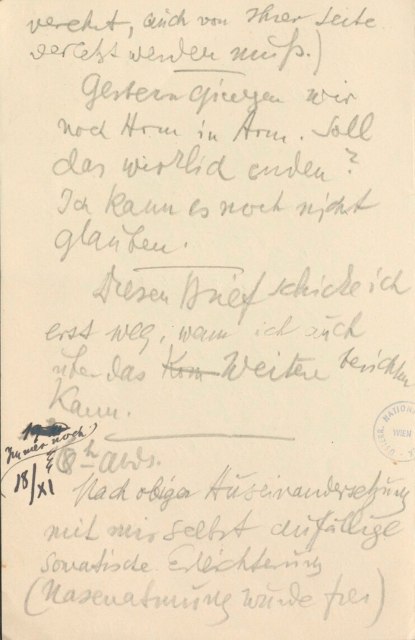 verehrt, auch von Ihrer Seite
verletzt werden muß.)
Gestern gingen wir
noch Arm in Arm. Soll
das wirklich enden?
Ich kann es noch nicht
glauben.
Diesen Brief schicke ich
erst weg, wann ich auch
über das Weitere berichten
kann.
Immer noch
18/XI
8 h abds.
Nach obiger Auseinandersetzung
mit mir selbst auffällige
somatische Erleichterung
(Nasenatmung wurde frei)
WIEN